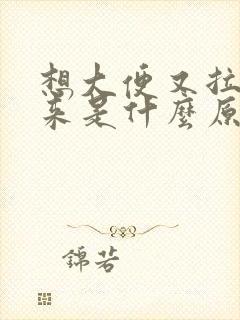 想大便又拉
来是什麼原
錦若